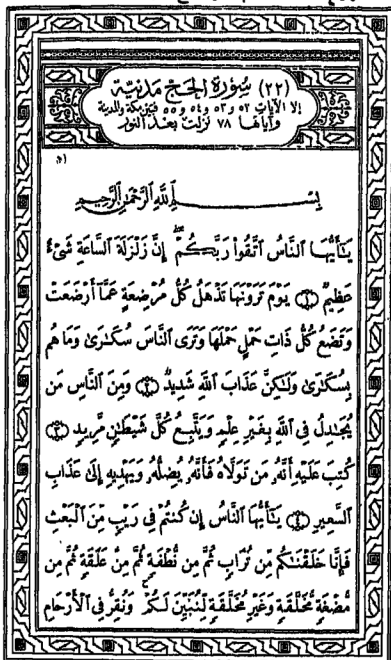 (٢٢) سُورَةُ الحَجّ مَدَنِيّة
إلا الآيات ٥٢ و ٥٣ و ٥٤ و ٥٥ فبين مكة والمدينة
وآياتها ٧٨ نزلت بعد النور
بِسْمِ ٱللَّهِ ٱلرَّحْمَٰنِ ٱلرَّحِيمِ
يَٰٓأَيُّهَا ٱلنَّاسُ ٱتَّقُوا۟ رَبَّكُمْ ۚ إِنَّ زَلْزَلَةَ ٱلسَّاعَةِ شَىْءٌ
عَظِيمٌ ﴿١﴾ يَوْمَ تَرَوْنَهَا تَذْهَلُ كُلُّ مُرْضِعَةٍ عَمَّآ أَرْضَعَتْ
وَتَضَعُ كُلُّ ذَاتِ حَمْلٍ حَمْلَهَا وَتَرَى ٱلنَّاسَ سُكَٰرَىٰ وَمَا هُم
بِسُكَٰرَىٰ وَلَٰكِنَّ عَذَابَ ٱللَّهِ شَدِيدٌ ﴿٢﴾ وَمِنَ ٱلنَّاسِ مَن
يُجَٰدِلُ فِى ٱللَّهِ بِغَيْرِ عِلْمٍ وَيَتَّبِعُ كُلَّ شَيْطَٰنٍ مَّرِيدٍ ﴿٣﴾
كُتِبَ عَلَيْهِ أَنَّهُۥ مَن تَوَلَّاهُ فَأَنَّهُۥ يُضِلُّهُۥ وَيَهْدِيهِ إِلَىٰ عَذَابِ
ٱلسَّعِيرِ ﴿٤﴾ يَٰٓأَيُّهَا ٱلنَّاسُ إِن كُنتُمْ فِى رَيْبٍ مِّنَ ٱلْبَعْثِ
فَإِنَّا خَلَقْنَٰكُم مِّن تُرَابٍ ثُمَّ مِن نُّطْفَةٍ ثُمَّ مِنْ عَلَقَةٍ ثُمَّ مِن
مُّضْغَةٍ مُّخَلَّقَةٍ وَغَيْرِ مُخَلَّقَةٍ لِّنُبَيِّنَ لَكُمْ ۚ وَنُقِرُّ فِى ٱلْأَرْحَامِ